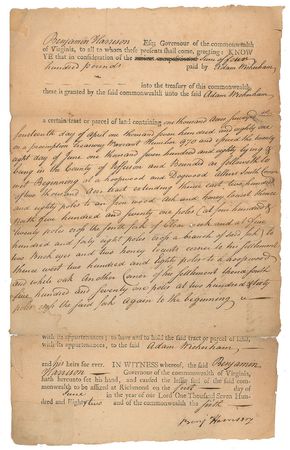 Benjamin Harrison Esq; Governour of the commonwealth
of Virginia, to all to whom these presents shall come, greeting: KNOW
YE that in consideration of the Sum of Four
hundred pounds paid by Adam Wickerham
into the treasury of this commonwealth,
there is granted by the said commonwealth unto the said Adam Wickerham,
a certain tract or parcel of land containing one thousand Acres Survey'd
fourteenth day of april one thousand seven hundred and eighty one
on a preemption Treasury Warrant Number 970 and Issued the twenty
day of June one thousand seven hundred and eighty lying &
being in the County of Jefferson and Bounded as followeth to
wit Beginning at a hoopwood and Dogwood South Corner
of two thousand Acre extending thence east two hundred
and eighty poles to an Iron wood Ash and honey locust thence
North five hundred and seventy one poles (at four hundred &
twenty poles cross the fork of creek and at Five
hundred and fifty eight poles cross a branch of said fork) to
two Buckeyes and two honey Locusts corner to his settlement
thence west two hundred and eighty poles to a hoopwood
and white oak Another Corner of the settlement thence South
five hundred and seventy one poles at two hundred & sixty
poles cross the said fork again to the beginning
with its appurtenances; to have and to hold the said tract or parcel of land,
with its appurtenances, to the said Adam Wickerham
and his heirs for ever. IN WITNESS whereof, the said Benjamin
Harrison Governour of the commonwealth of Virginia,
hath hereunto set his hand, and caused the lesser seal of the said common-
wealth to be affixed at Richmond on the first day of
June in the year of our Lord One Thousand Seven Hun-
dred and Eighty two and of the commonwealth the sixth
Benj Harrison